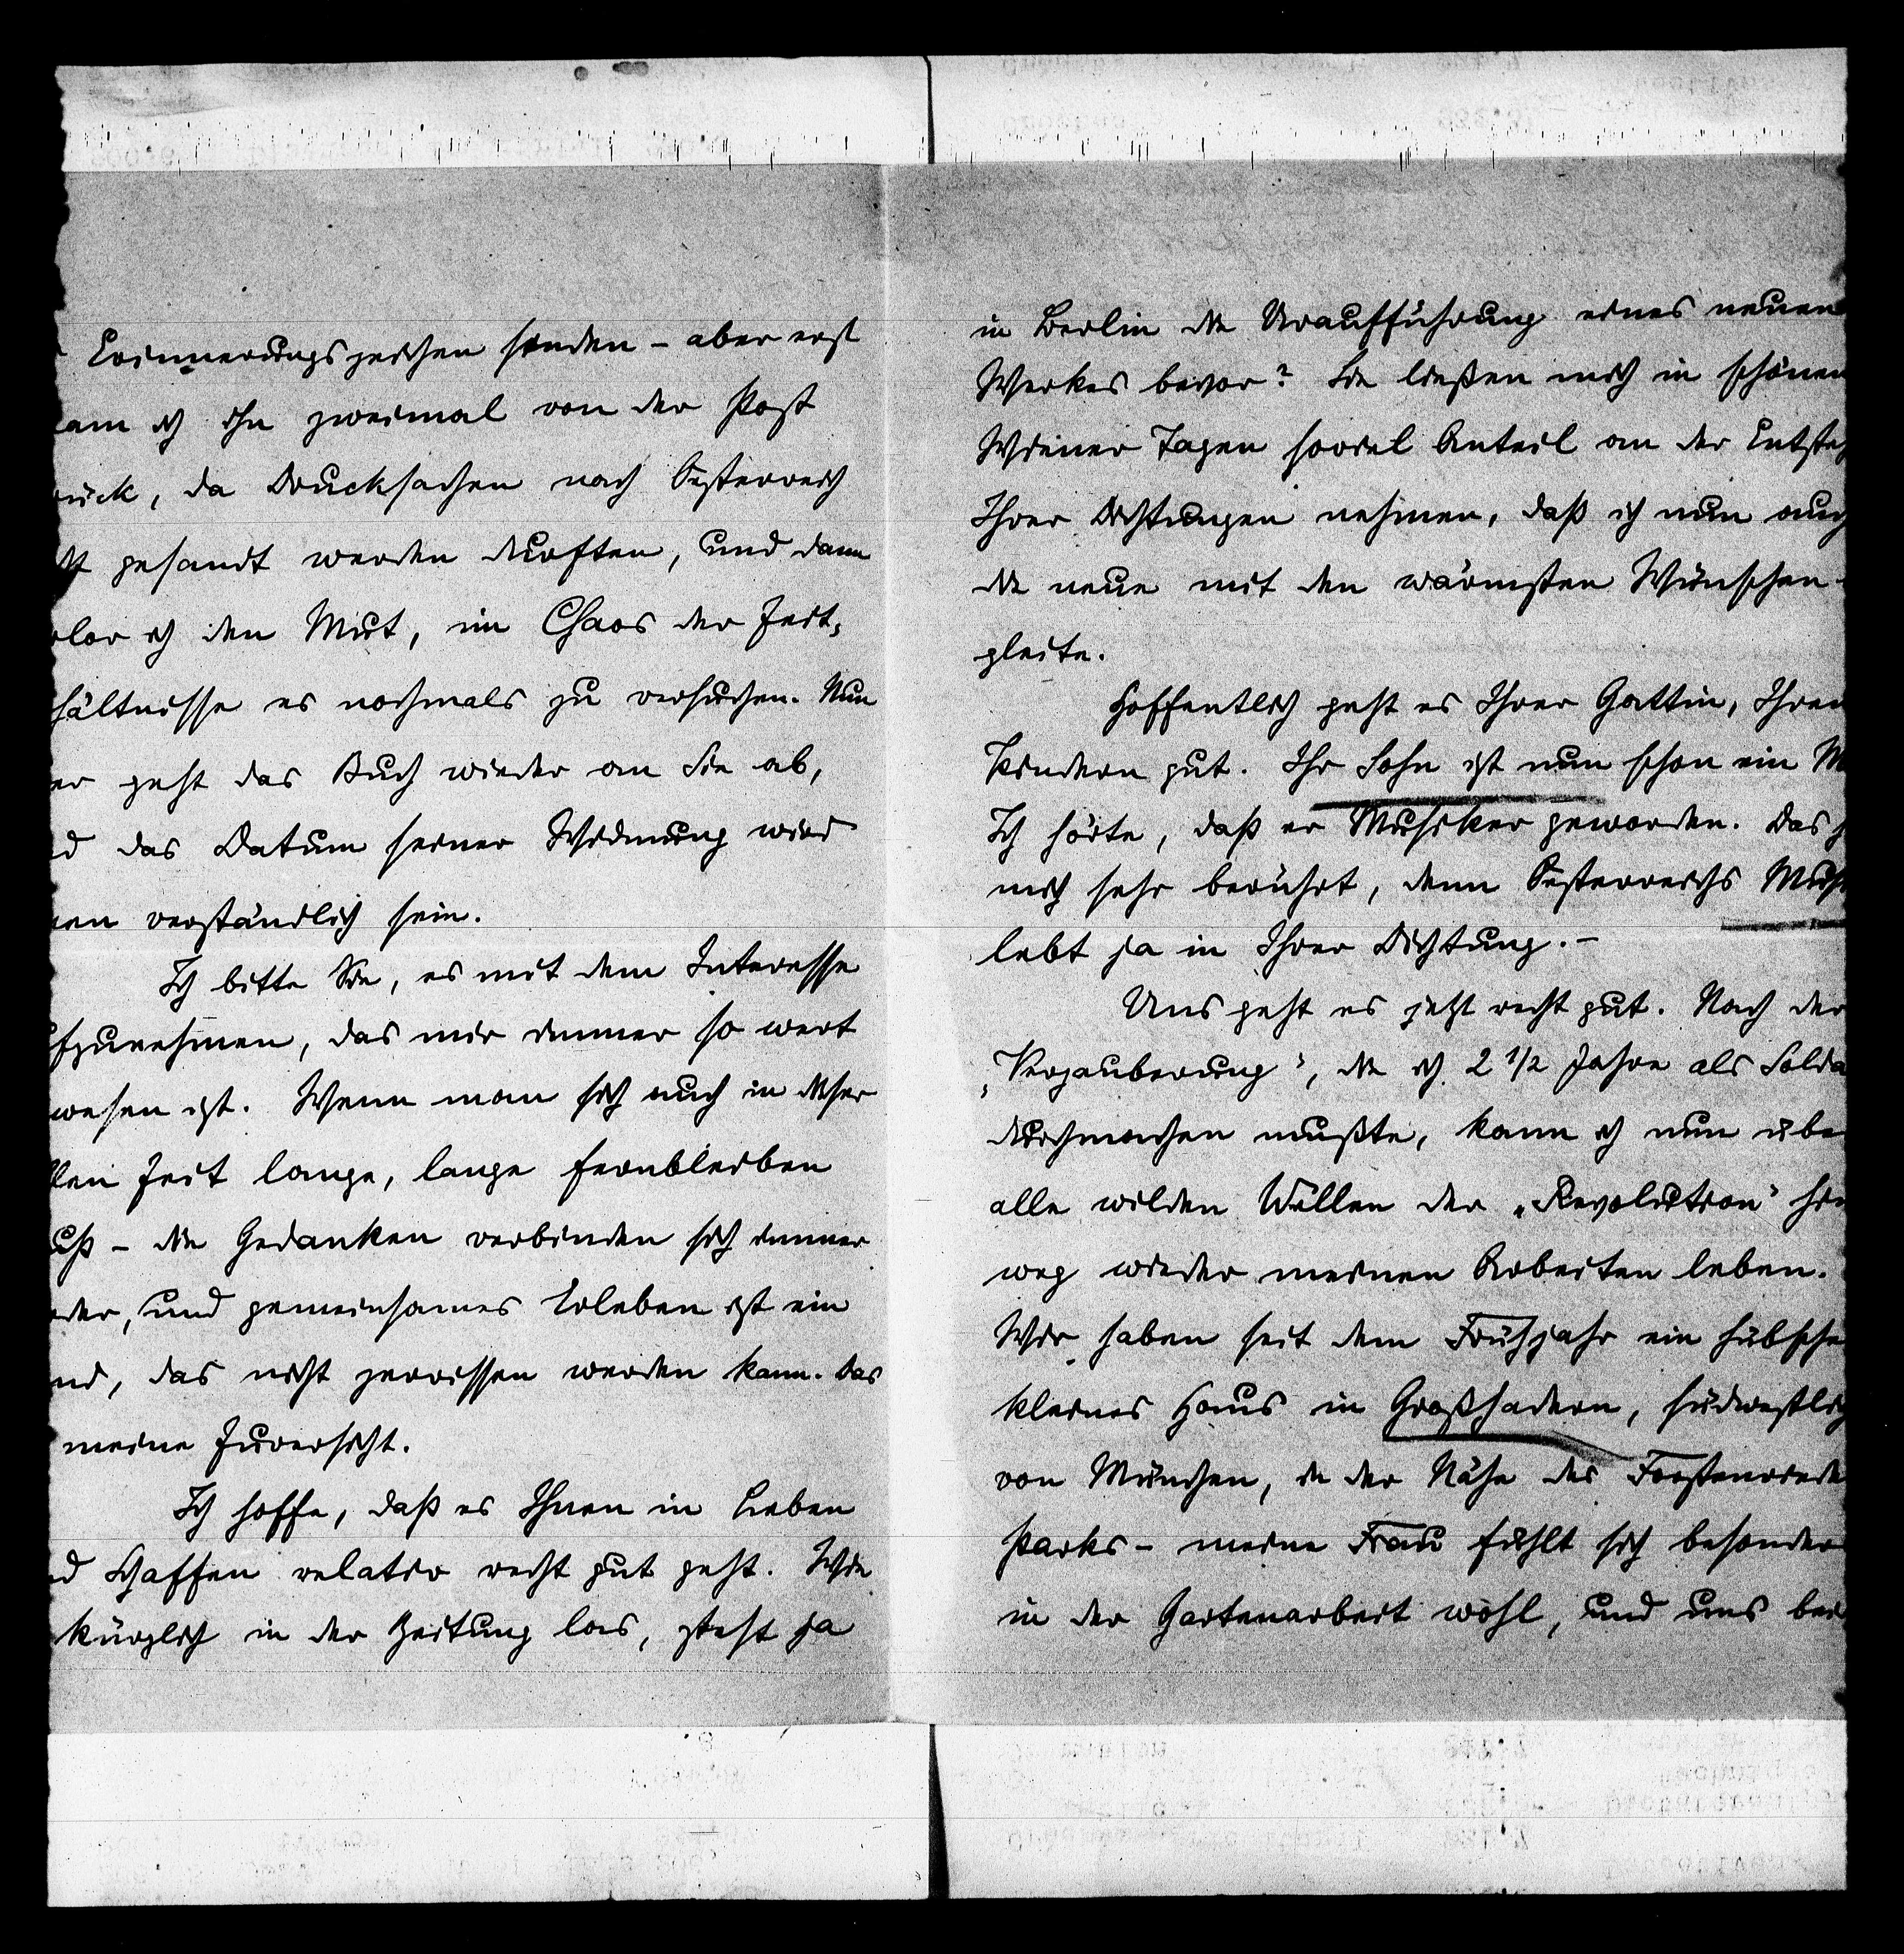 Erinnerungszeichen senden – aber erst
am ich ihn zweimal von der Post
rück, da Drucksachen nach Österreich
gesandt werden durften, und dann
rlor ich den Mut, im Chaos der Zeit-
hältnisse es nochmals zu versuchen. Nun
er geht das Buch wieder an Sie ab,
d das Datum seiner Widmung wird
nen verständlich sein.
Ich bitte Sie, es mit dem Interesse
fzunehmen, das mir immer so wert
wesen ist. Wenn man sich auch in dieser
llen Zeit lange, lange fernbleiben
uß – die Gedanken verbinden sich immer
eder, und gemeinsames Erleben ist ein
nd, das nicht zerrissen werden kann. Das
meine Zuversicht.
Ich hoffe, daß es Ihnen in Leben
d Schaffen relativ recht gut geht. Wie
kürzlich in der Zeitung las, steht ja
in Berlin die Uraufführung eines neuen
Werkes bevor? Sie ließen mich in schönen
Wiener Tagen soviel Anteil an der Entsteh
Ihrer Dichtungen nehmen, daß ich nun auch
die neue mit den wärmsten Wünschen
gleite.
Hoffentlich geht es Ihrer Gattin, Ihren
Kindern gut. Ihr Sohn ist nun schon ein M
Ich hörte, daß er Musiker geworden. Das
mich sehr berührt, denn Österreichs Musi
lebt ja in Ihrer Dichtung. –
Uns geht es jetzt recht gut. Nach der
„Verzauberung", die ich 2 1/2 Jahre als Solda
durchmachen mußte, kann ich nun übe
alle wilden Wellen der „Revolution" hin
weg wieder meinen Arbeiten leben.
Wir haben seit dem Frühjahr ein hübsche
kleines Haus in Großhadern, südwestlich
von München, in der Nähe des Forstenriede
Parks – meine Frau fühlt sich besonder
in der Gartenarbeit wohl, und uns bei